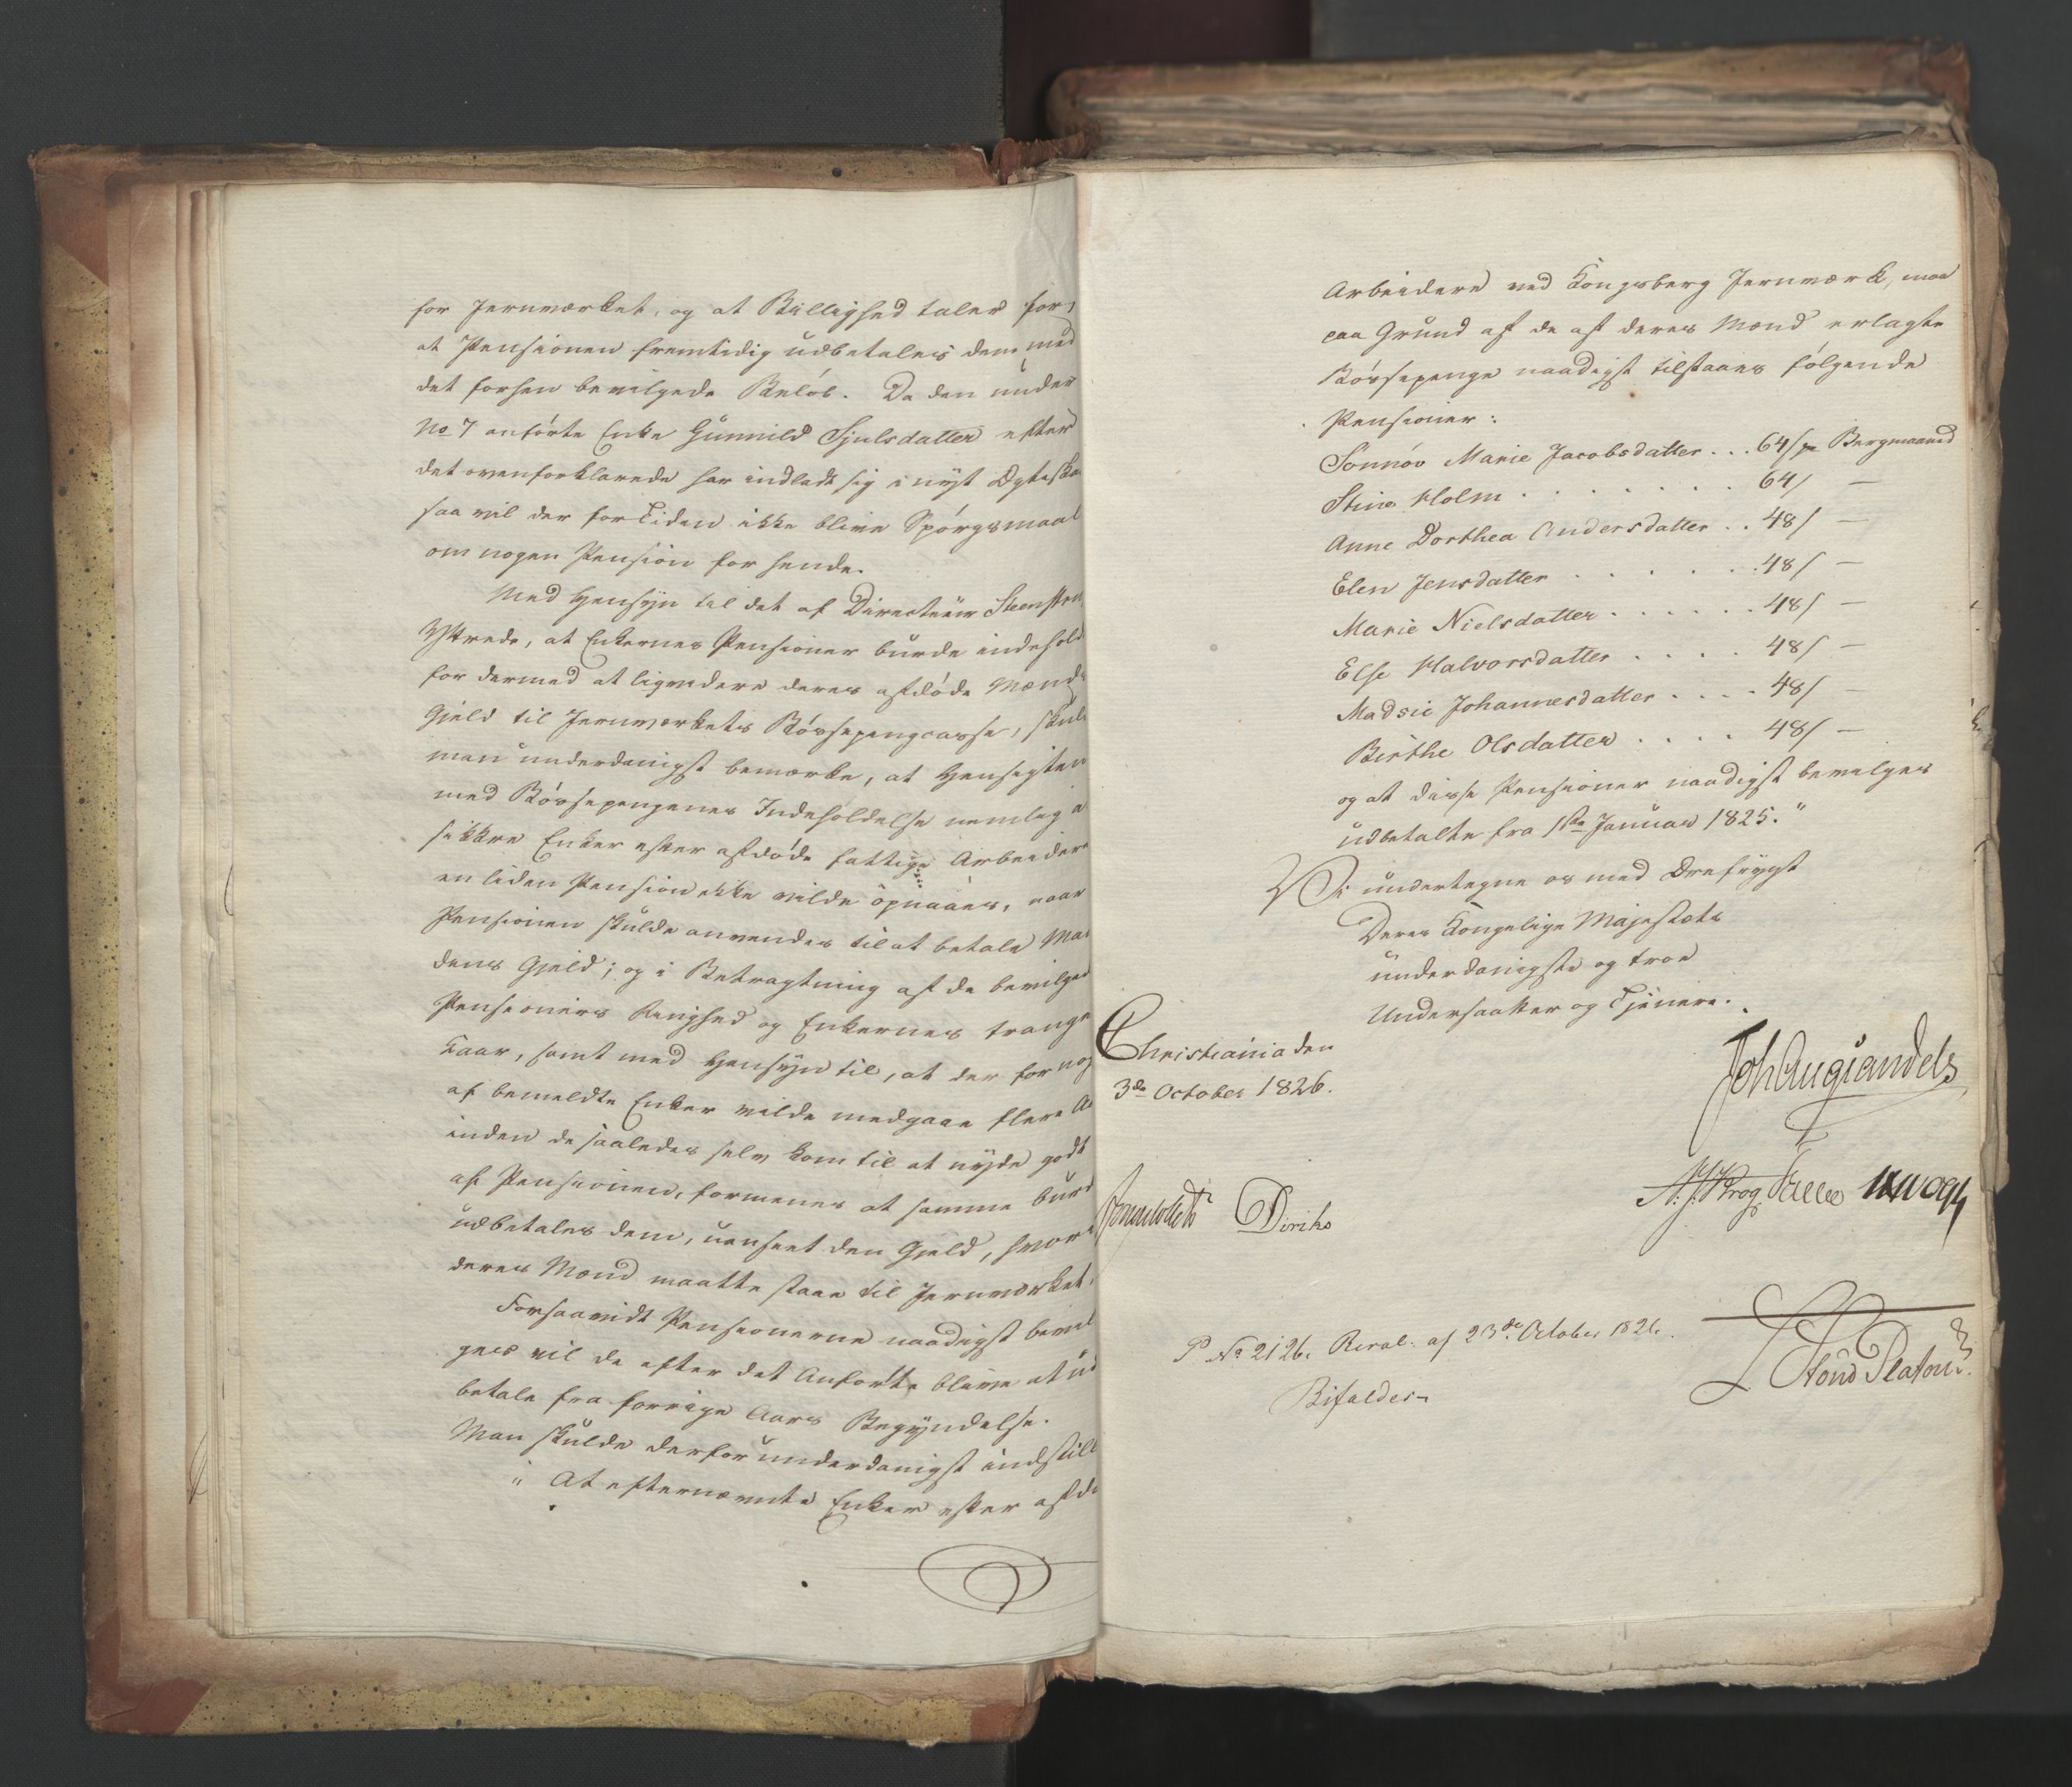 for Jernværket, og at Billighed taler for,
at Pensionen fremtidig udbetales dem med
det forhen bevilgede Beløb. Da den under
No 7 anførte Enke Gunnild Sjulsdatter efter
det ovenforklarede har indladt sig i nyt Ægteska
saa vil der for Tiden ikke blive Spørgsmaal
om nogen Pension for hende.
Med Hensyn til det af Directeur Steenstru
Yttrede, at Enkernes Pensioner burde indehold
for dermed at liqvidere deres afdøde Mænds
Gjeld til Jernværkets Bøssepengcasse, skul
man underdanigst bemærke, at Hensigten
med Bøssepengenes Indeholdelse nemlig a
sikkre Enker efter afdøde fattige Arbeidere
en liden Pension ikke vilde opnaaes, naar
Pensionen skulde anvendes til at betale Man
dens Gjeld; og i Betragtning af de bevilged
Pensioners Ringhed og Enkernes trange
Kaar, samt med Hensyn til, at der for nog
af bemeldte Enker vilde medgaae flere A
inden de saaledes selv kom til at nyde godt
af Pensionen, formenes at samme burd
udbetales dem, uanseet den Gjeld, hvori
deres Mænd maatte staae til Jernværket.
Forsaavidt Pensionerne naadigst bevil
ges vil de efter det Anførte blive at ud
betale fra forrige Aars Begyndelse.
Man skulde derfor underdanigst indstill
" At efternævnte Enker efter afdø
Arbeidere ved Kongsberg Jernværk, maa
paa Grund af de af deres Mænd erlagte
Bøssepenge naadigst tilstaaes følgende
Pensioner:
Sønnøv Marie Jacobsdatter . . . 64/ pr Bergmaaned
Stine Holm . . . . . . . 64/ —
Anne Dorthea Andersdatter . . 48/ —
Elen Jensdatter . . . . . . 48/ —
Marie Nielsdatter . . . . . . 48/ —
Else Halvorsdatter . . . . 48/ —
Madsie Johannesdatter . . . . 48/ —
Birthe Olsdatter . . . . 48/ —
og at disse Pensioner naadigst bevilges
udbetalte fra 1ste Januar 1825."
Vi undertegne os med Ærefrygt
Deres Kongelige Majestæts
underdanigste og troe
Undersaatter og Tjenere.
Christiania den
3de October 1826.
Joh Aug Sandels
N. J. Krog
Diriks
P No 2126. Resol. af 23de October 1826.
Bifaldes